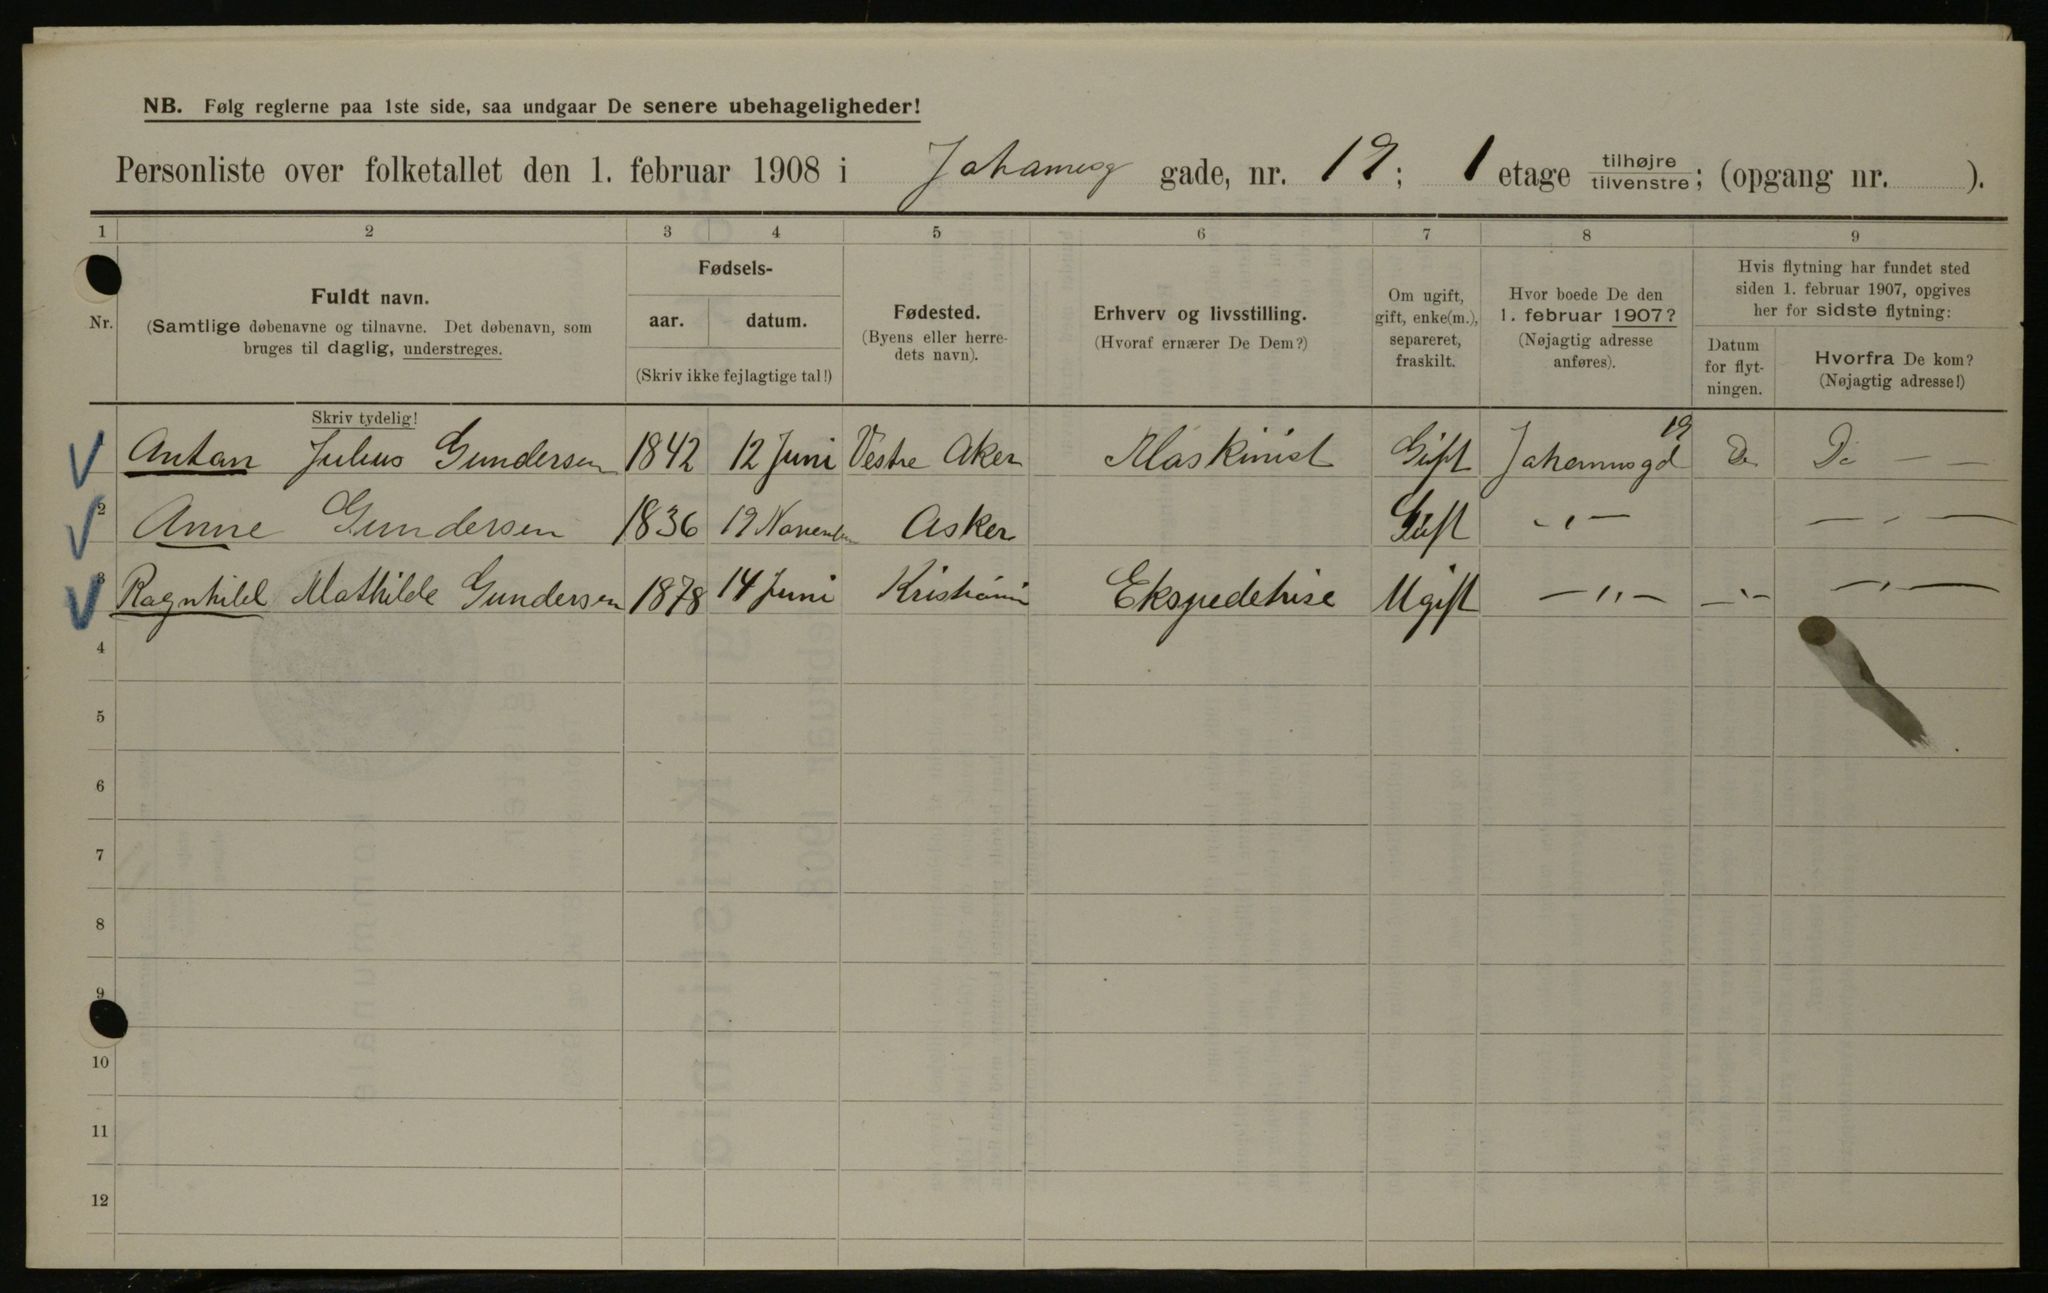 NB. Følg reglerne paa 1ste side, saa undgaar De senere ubehageligheder!
Personliste over folketallet den 1. februar 1908 i Johannesg gade, nr. 19; 1 etage tilhøjre tilvenstre; (opgang nr. ).
1 2 3 4 5 6 7 8 9
Nr.
Fuldt navn.
(Samtlige døbenavne og tilnavne. Det døbenavn, som
bruges til daglig, understreges.
Skriv tydelig!
Fødsels-
aar. datum.
(Skriv ikke fejlagtige tal!)
Fødested.
(Byens eller herre-
dets navn).
Erhverv og livsstilling.
(Hvoraf ernærer De Dem?)
Om ugift,
gift, enke(m.),
separeret,
fraskilt.
Hvor boede De den
1. februar 1907?
(Nøjagtig adresse
anføres).
Hvis flytning har fundet sted
siden 1. februar 1907, opgives
her for sidste flytning:
Datum
for flyt-
ningen.
Hvorfra De kom?
(Nøjagtig adresse!)
Anton Julius Gundersen 1842 12 Juni Vestre Aker Maskinist Gift Johannesgd 19 Do Do — —
2 Anne Gundersen 1836 19 November Asker Gift -,,- — „ —
3 Ragnhild Mathilde Gundersen 1878 14 Juni Kristiania Ekspeditrise Ugift —,,— —„— —„—
4
5
6
7
8
9
10
11
12